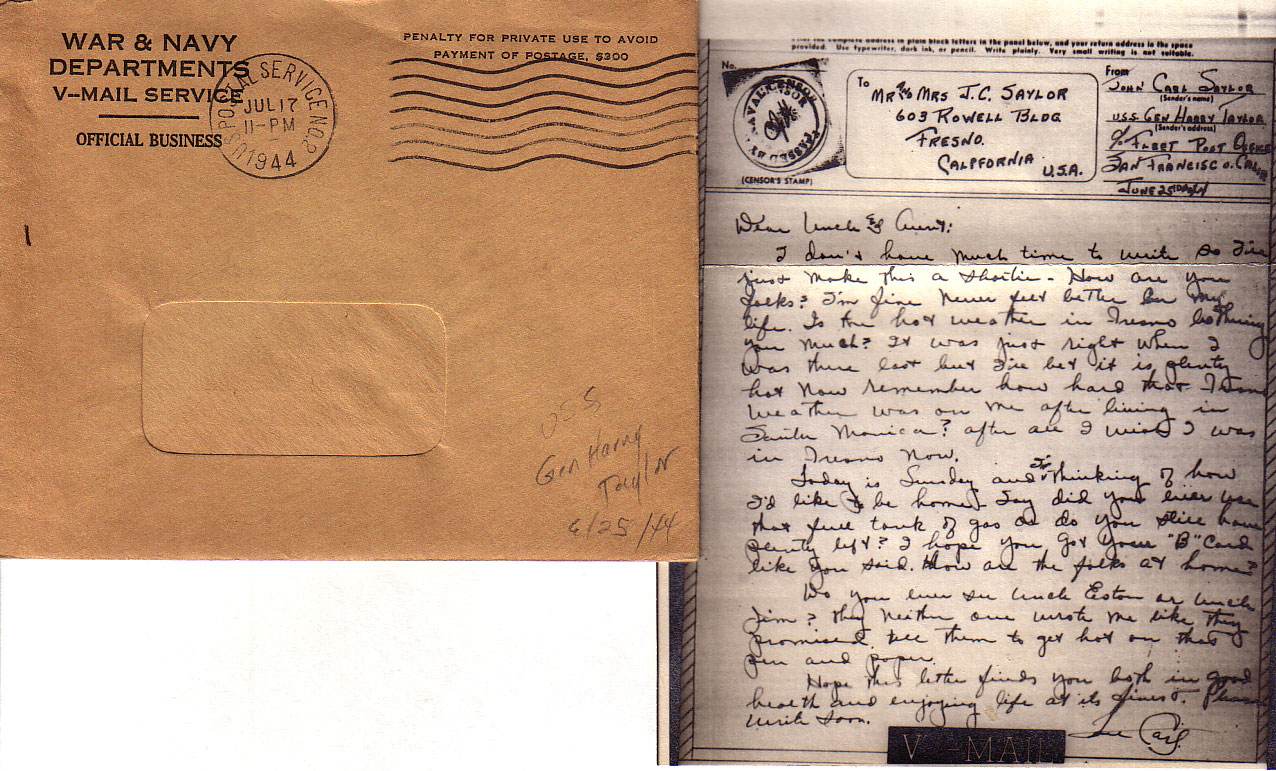 WAR & NAVY
DEPARTMENTS
V-MAIL SERVICE
OFFICIAL BUSINESS
U.S. POSTAL SERVICE NO. 2
JUL 17
11-PM
1944
PENALTY FOR PRIVATE USE TO AVOID
PAYMENT OF POSTAGE, $300
USS
Gen Harry
Taylor
6/25/44
complete address in plain block letters in the panel below, and your return address in the space
provided. Use typewriter, dark ink, or pencil. Write plainly. Very small writing is not suitable.
No.
PASSED BY NAVAL CENSOR
(CENSOR'S STAMP)
To
MR AND MRS J.C. SAYLOR
603 ROWELL BLDG
FRESNO.
CALIFORNIA
U.S.A.
From
JOHN CARL SAYLOR
(Sender's name)
USS GEN HARRY TAYLOR
(Sender's address)
c/o FLEET POST OFFICE
SAN FRANCISCO. CALIF
JUNE 25
Dear Uncle & Aunt:
I don't have much time to write so I'll
just make this a shortie - How are you
folks? I'm fine never felt better in my
life. Is the hot weather in Fresno bothering
you much? It was just right when I
was there last but I'll bet it is plenty
hot now remember how hard that Fresno
weather was on me after living in
Santa Monica? after all I wish I was
in Fresno now.
Today is Sunday and I'm thinking of how
I'd like to be home. Say did you ever use
that full tank of gas or do you still have
plenty left? I hope you got your "B" Card
like you said. How are the folks at home?
Do you ever see Uncle Eston or Uncle
Jim? they neither one wrote me like they
promised. tell them to get hot on that
pen and paper.
Hope this letter finds you both in good
health and enjoying life at its finest. Please
write soon.
Carl
V-MAIL